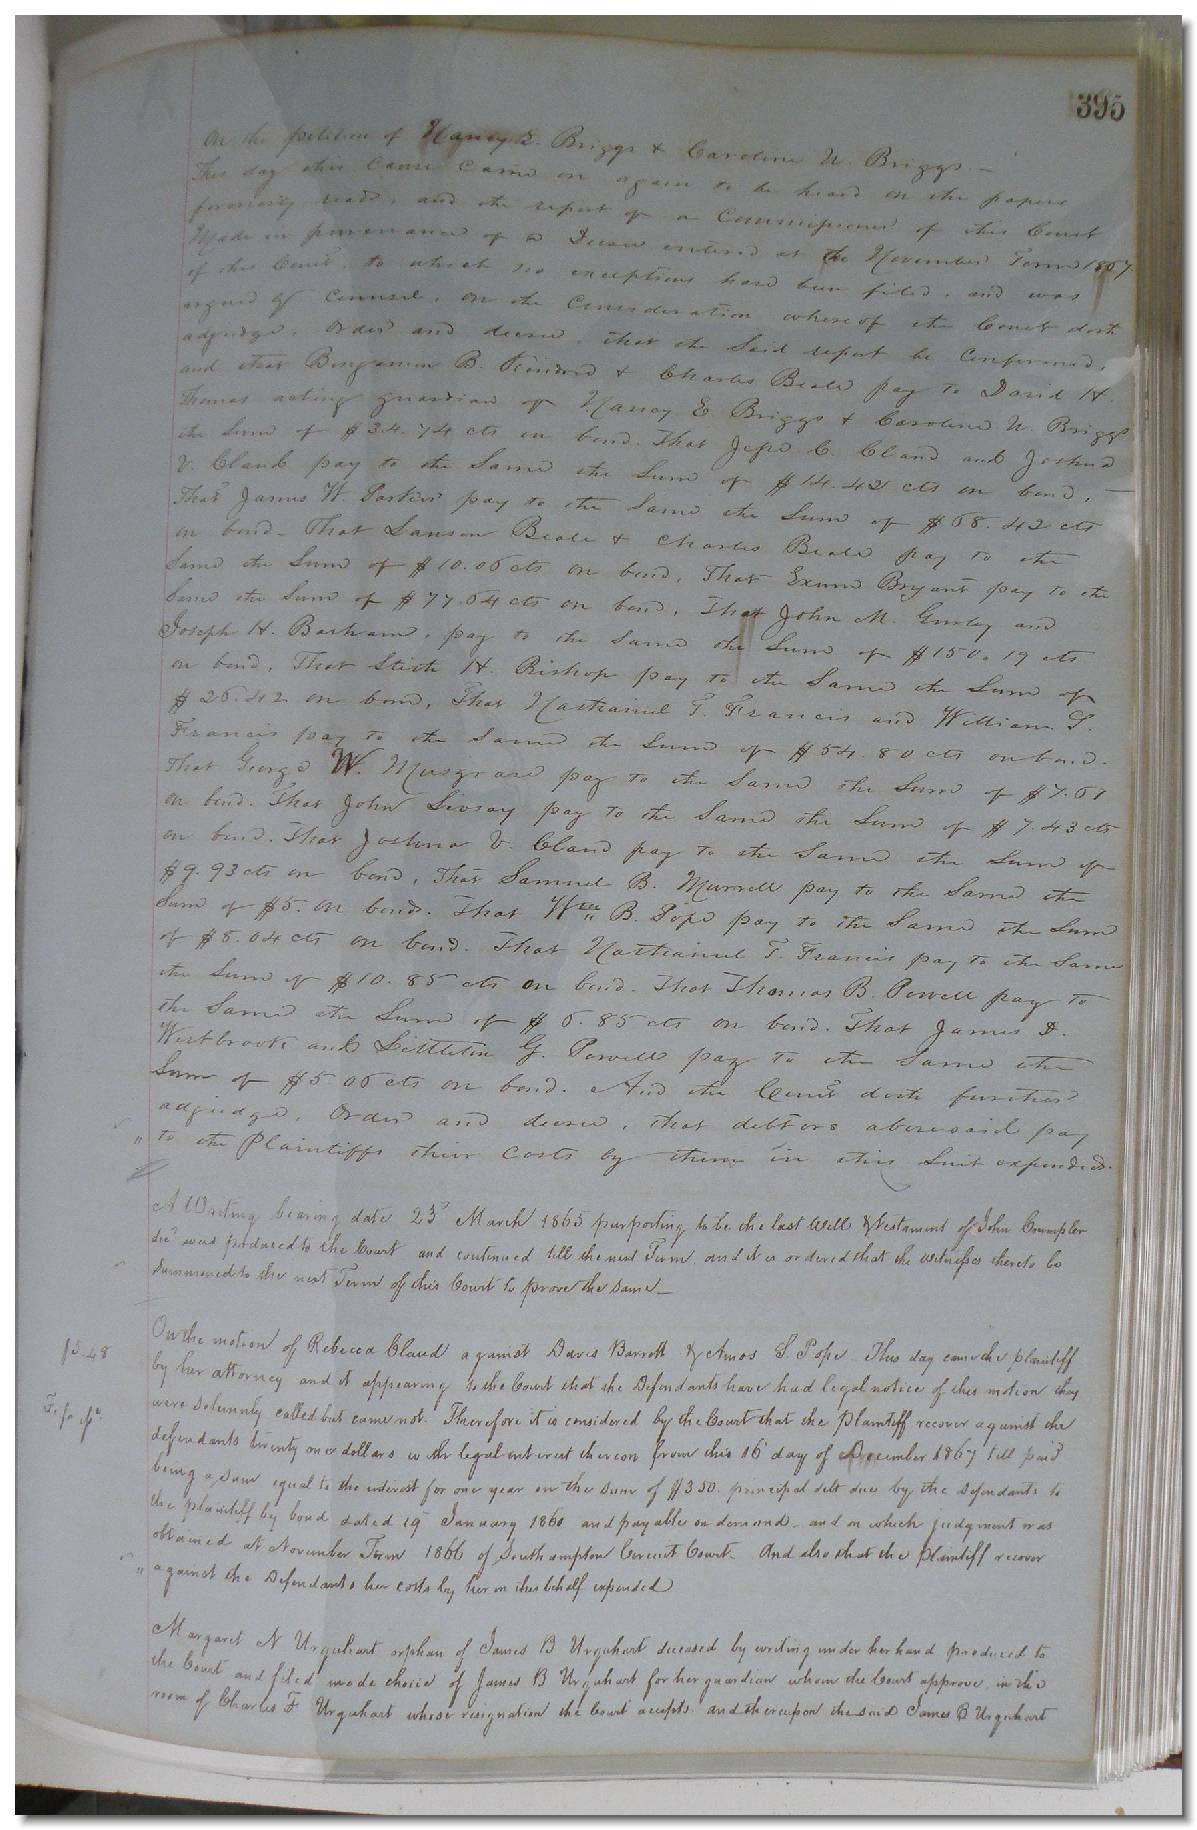 395
On the petition of Nancy E. Briggs & Caroline N. Briggs. –
This day this cause came on again to be heard on the papers
formerly read, and the report of a Commissioner of this Court
Made in pursuance of a Decree entered at the November Term 1867
of this Court, to which no exceptions have been filed, and was
argued by Counsel, on the Consideration whereof the Court doth
adjudge, order and decree, that the Said report be Confirmed,
and that Benjamin B. Kindred & Charles Beale pay to David H.
Thomas acting guardian of Nancy E Briggs & Caroline N. Briggs
the Sum of $34.74 cts on bond. That Jesse C. Claud and Joshua
V. Claud pay to the Same the Sum of $14.42 cts on bond, —
That James W. Parker pay to the Same the Sum of $68.42 cts
on bond - That Lanson Beale & Charles Beale pay to the
Same the Sum of $10.06 cts on bond, That Exum Bryant pay to the
Same the Sum of $77.64 cts on bond, That John M. Gurley and
Joseph H. Barham, pay to the Same the Sum of $150.19 cts
on bond, That Stith H. Bishop pay to the Same the Sum of
$26.42 on bond, That Nathaniel T. Francis and William T.
Francis pay to the Same the Sum of $54.80 cts on bond.
That George W. Musgrave pay to the Same the Sum of $7.61
on bond. That John Livsay pay to the Same the Sum of $7.43 cts
on bond. That Joshua V. Claud pay to the Same the Sum of
$9.93 cts on bond, That Samuel B. Murrell pay to the Same the
Sum of $5. on bond. That Wm B. Pope pay to the Same the Sum
of $8.04 cts on bond. That Nathaniel T. Francis pay to the Same
the Sum of $10.85 cts on bond. That Thomas B. Powell pay to
the Same the Sum of $6.85 cts on bond. That James D.
Westbrook and Littleton G. Powell pay to the Same the
Sum of $5 06 cts on bond. And the Court doth further
adjudge, Order and decree, that debtors aforesaid pay
" to the Plaintiffs their Costs by them in this Suit expended.
A Writing bearing date 23d March 1865 purporting to be the last Will & Testament of John Crumpler
decd was produced to the Court and continued till the next Term and it is ordered that the witnesses thereto be
Summoned to the next Term of this Court to prove the same —
On the motion of Rebecca Claud against Davis Barrett & Amos S. Pope - This day came the plaintiff
$5.48 by her attorney and it appearing to the Court that the Defendants have had legal notice of this motion they
were solemnly called but came not. Therefore it is considered by the Court that the plaintiff recover against the
defendants twenty one dollars with legal interest thereon from this 16 day of December 1867 till paid
being a sum equal to the interest for one year on the sum of $350. principal debt due by the defendants to
the plaintiff by bond dated 19 January 1860 and payable on demand - and on which judgment was
obtained at November Term 1866 of Southampton Circuit Court - And also that the plaintiff recover
" against the Defendants her costs by her in this behalf expended
Margaret N Urquhart orphan of James B Urquhart deceased by writing under her hand produced to
the Court and filed made choice of James B Urquhart for her guardian whom the Court approve, in the
room of Charles F Urquhart whose resignation the Court accepts, and thereupon the said James B Urquhart